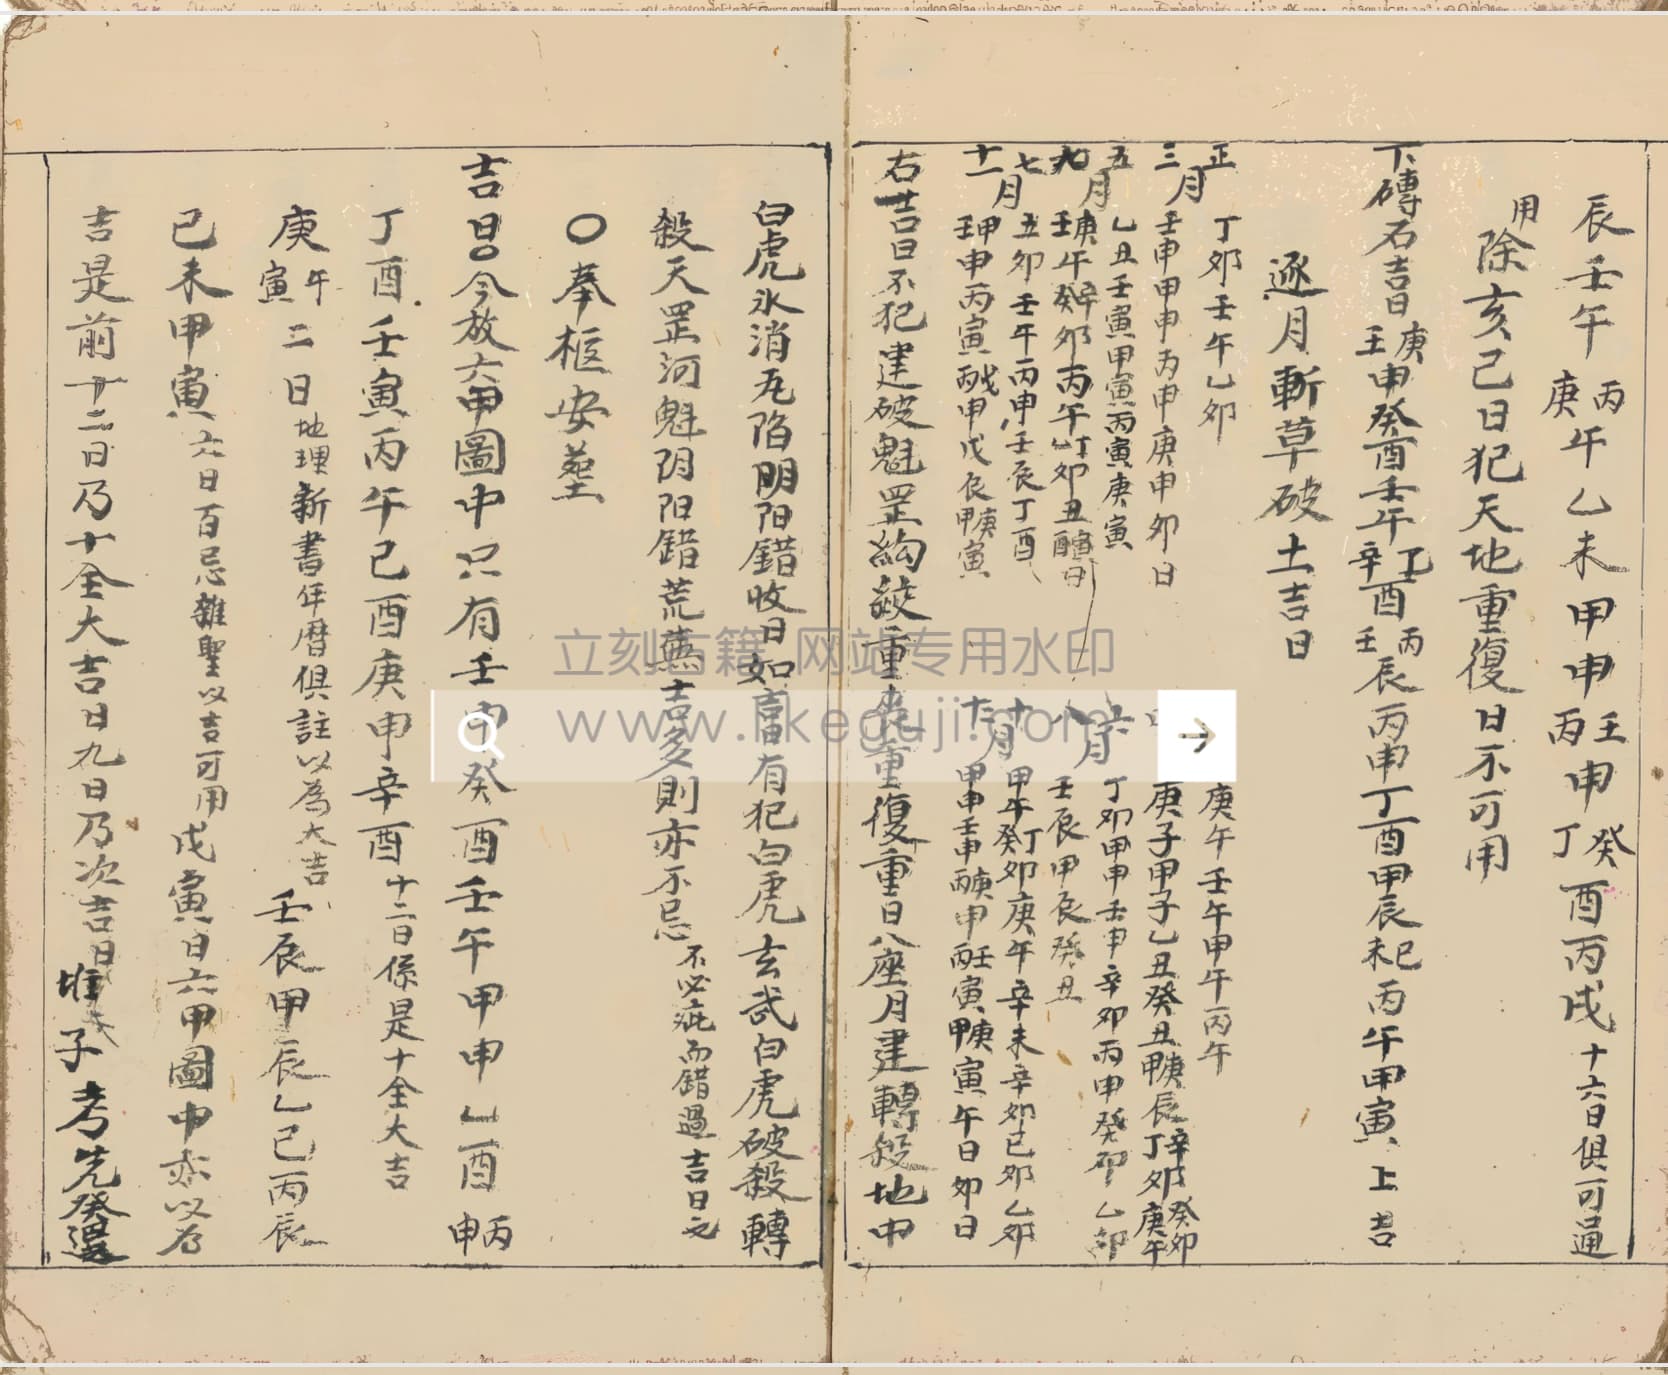 辰壬午庚丙午乙未甲申丙壬申丁癸酉丙戌十六日俱可通
用除亥己日犯天地重復日不可用
下磚石吉日庚壬申癸酉壬午丁辛酉丙壬辰丙申丁酉甲辰未巳丙午甲寅上吉
逐月斬草破土吉日
正月 丁卯壬午乙卯
庚午壬午甲午丙午
三月 壬申甲申丙申庚申卯日
庚子甲子乙丑癸丑甲庚辰丁辛卯庚午癸卯
五月 乙丑壬寅甲寅丙寅庚寅
六月 丁卯甲申壬申辛卯丙申癸卯乙卯
九月
八月 壬辰甲辰癸丑
七月 丑卯壬午丙申壬辰丁酉
十月 甲午癸丁卯庚午辛未辛卯己卯乙卯
十一 壬甲申丙寅
十二
右吉日不犯建破魁罡絢絞重喪重復重日八座月建轉殺地中
白虎氷消瓦陷陰陽錯收日如富有犯白虎玄武白虎破殺轉
殺天罡河魁阴阳錯荒蕪吉多則亦不忌不必疵而錯過吉日也
〇奉柩安葬
吉日〇今放六甲圖中只有壬申癸酉壬午甲申乙酉丙申
丁酉壬寅丙午己酉庚申辛酉十二日係是十全大吉
庚午寅二日地理新書年曆俱註以為大吉壬辰甲辰乙巳丙辰
己未甲寅六日百忌雜聖以吉可用戊寅日六甲圖中亦以為
吉是前十二日乃十全大吉日九日乃次吉日
堆子考先癸選
立刻古籍 网站专用水印
www.likeguji.com